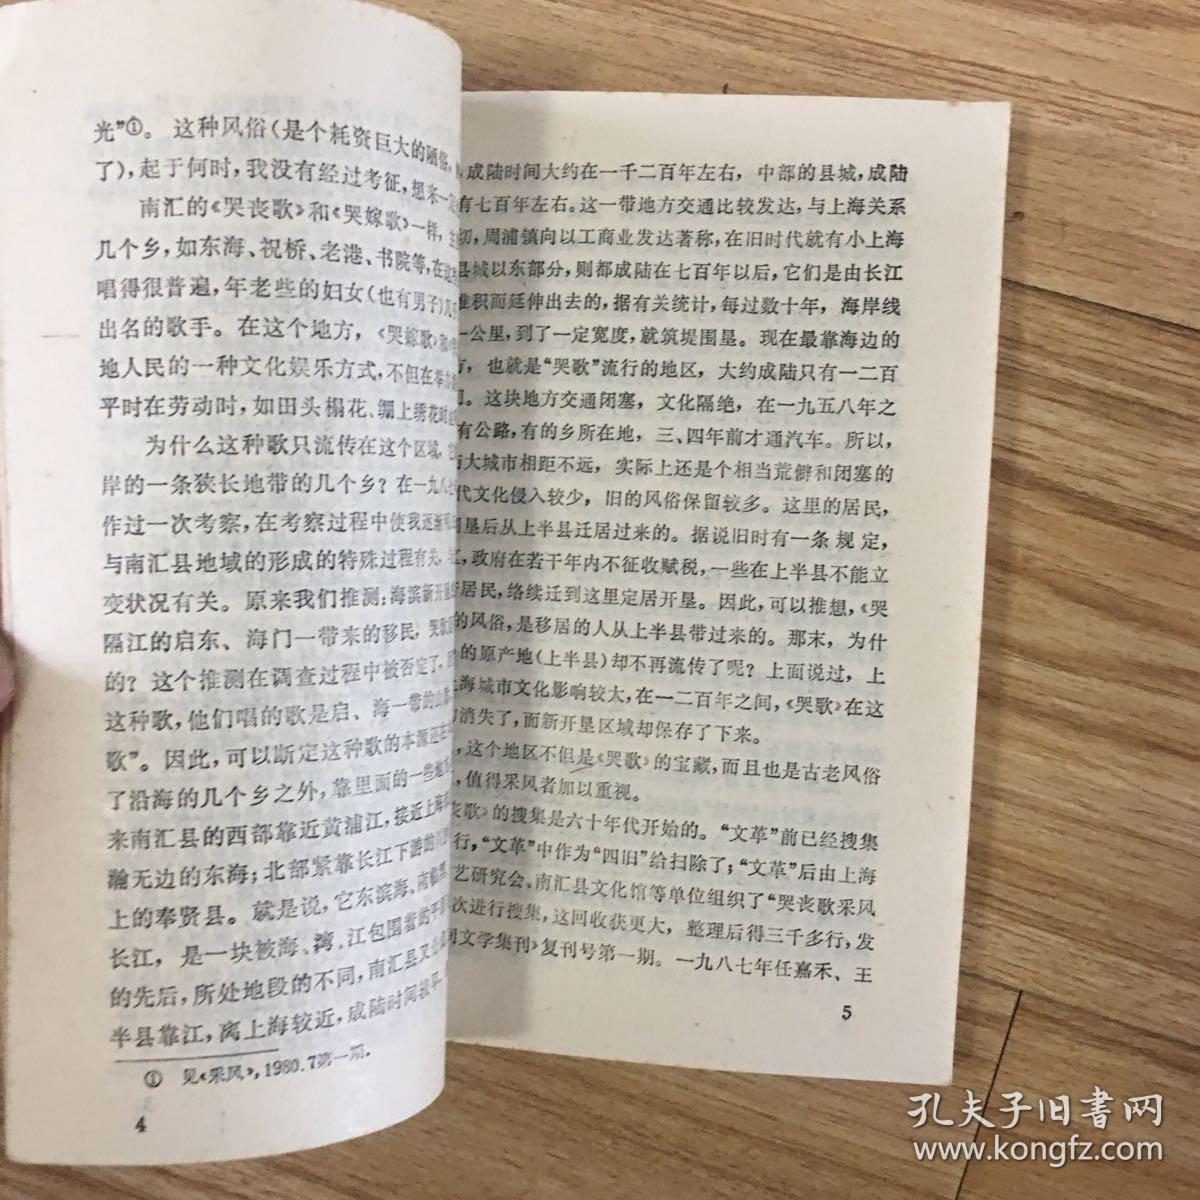 光”①。这种风俗(是个耗资巨大的陋俗,
了),起于何时,我没有经过考征,想来一定
南汇的《哭丧歌》和《哭嫁歌》一样,
几个乡,如东海、祝桥、老港、书院等,在
唱得很普遍,年老些的妇女(也有男子)几
出名的歌手。在这个地方,《哭嫁歌》和
地人民的一种文化娱乐方式,不但在举
平时在劳动时,如田头榻花、绷上绣花时
为什么这种歌只流传在这个区域,
岸的一条狭长地带的几个乡?在一九八
作过一次考察,在考察过程中使我逐渐
与南汇县地域的形成的特殊过程有关,
变状况有关。原来我们推测:海滨新开垦
隔江的启东、海门一带来的移民,哭歌
的?这个推测在调查过程中被否定了,
这种歌,他们唱的歌是启、海一带的
歌”。因此,可以断定这种歌的本源还在
了沿海的几个乡之外,靠里面的一些地
来南汇县的西部靠近黄浦江,接近上海
瀚无边的东海;北部紧靠长江下游的
上的奉贤县。就是说,它东滨海、南临
长江,是一块被海、湾、江包围着的半
的先后,所处地段的不同,南汇县又
半县靠江,离上海较近,成陆时间较早
① 见《采风》,1980.7第一期.
4
成陆时间大约在一千二百年左右,中部的县城,成陆
有七百年左右。这一带地方交通比较发达,与上海关系
切,周浦镇向以工商业发达著称,在旧时代就有小上海
县城以东部分,则都成陆在七百年以后,它们是由长江
堆积而延伸出去的,据有关统计,每过数十年,海岸线
一公里,到了一定宽度,就筑堤围垦。现在最靠海边的
方,也就是“哭歌”流行的地区,大约成陆只有一二百
。这块地方交通闭塞,文化隔绝,在一九五八年之
有公路,有的乡所在地,三、四年前才通汽车。所以,
与大城市相距不远,实际上还是个相当荒僻和闭塞的
代文化侵入较少,旧的风俗保留较多。这里的居民,
垦后从上半县迁居过来的。据说旧时有一条规定,
,政府在若干年内不征收赋税,一些在上半县不能立
居民,络续迁到这里定居开垦。因此,可以推想,《哭
的风俗,是移居的人从上半县带过来的。那末,为什
的原产地(上半县)却不再流传了呢?上面说过,上
上海城市文化影响较大,在一二百年之间,《哭歌》在这
消失了,而新开垦区域却保存了下来。
,这个地区不但是《哭歌》的宝藏,而且也是古老风俗
,值得采风者加以重视。
丧歌》的搜集是六十年代开始的。“文革”前已经搜集
行,“文革”中作为“四旧”给扫除了;“文革”后由上海
艺研究会、南汇县文化馆等单位组织了“哭丧歌采风
次进行搜集,这回收获更大,整理后得三千多行,发
间文学集刊》复刊号第一期。一九八七年任嘉禾、王
5
孔夫子旧书网
www.kongfz.com